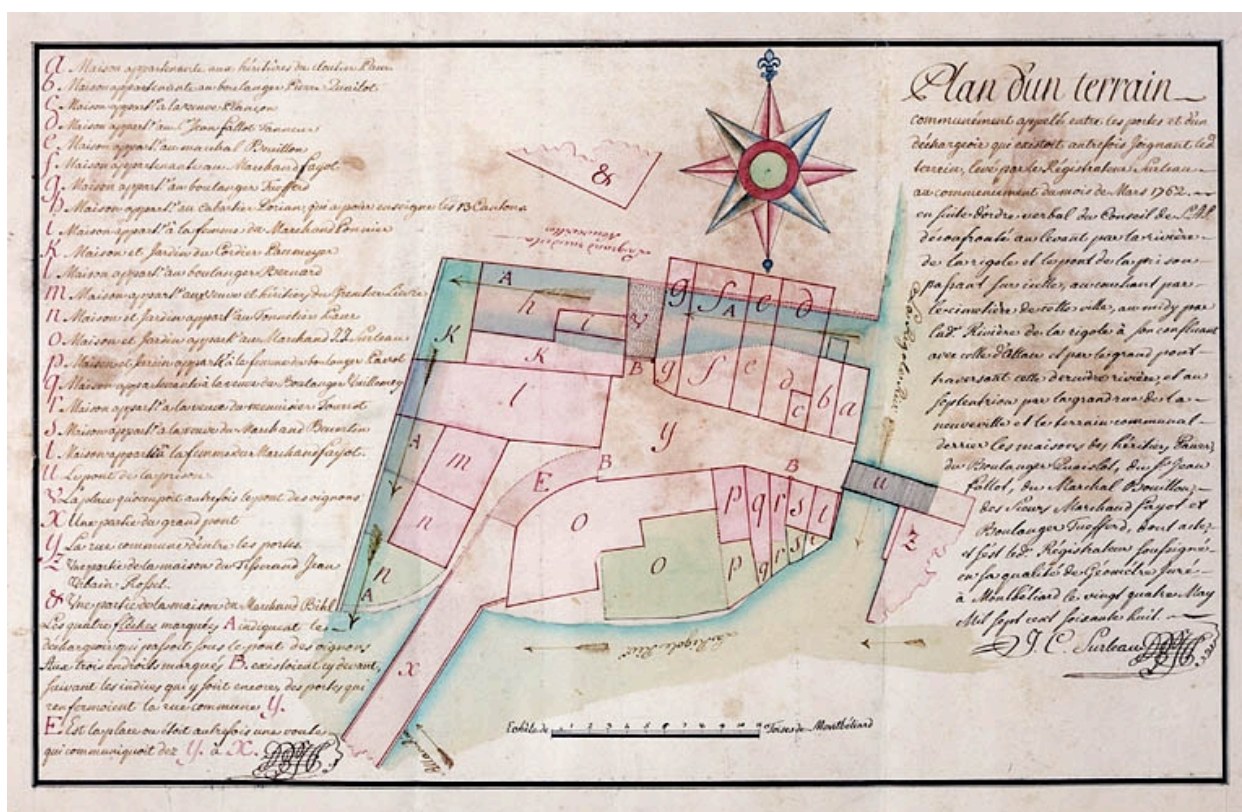 a Maison appartenante aux héritiers du cloutier Paur
b Maison appartenante au boulanger Pierre
c Maison appart.t à la veuve Plançon
d Maison appart.t au S.r Jean Fallot Tanneur
e Maison appart.t au marchal Bouillon
f Maison appartenante au Marchand Fayot
g Maison appart.t au boulanger Tuefferd
h Maison appart.t au Cabartier Lorian, qui a pour enseigne les 13 Cantons
i Maison appart.t à la femme du Marchand
K Maison et Jardin du Cordier
l Maison appart.t au boulanger Bernard
m Maison appart.t aux veuve et héritiers du
n Maison et Jardin appart.t au Tonnelier
o Maison et Jardin appart.t au Marchand J.J. Surleau
p Maison et Jardin appart.t à la femme du boulanger
q Maison appartenante à la veuve du Boulanger
r Maison appart.t à la veuve du menuisier
s Maison appart.t à la veuve du Marchand
t Maison appart.t à la femme du Marchand Fayot.
u Le pont de la prison
v La place qu'occupoit autrefois le pont des oignons
X Une partie du grand pont
y La rue commune d'entre les portes
Z Une partie de la maison du Tisserand Jean
Urbain Rossel
& Une partie de la maison du Marchand Bihl
Les quatre flèches marquées A indiquent le
déchargeoir qui passoit sous le pont des oignons
Aux trois endroits marqués B. existoient cy devant,
suivant les indices qui y sont encore, des portes qui
renfermoient la rue commune Y.
E Est la place ou étoit autrefois une voute
qui communiquoit dez Y. à X.
Plan d'un terrain
communément appelé entre les portes et d'un
déchargeoir qui existoit autrefois joignant led.
terrein, levé par le Régistrateur Surleau
au commencement du mois de Mars 1762.
en suite d'ordre verbal du Conseil de
au levant par la rivière
de la rigole et le pont de la prison
passant sur icelle, au couchant par
le cimetière de cette ville, au midy par
lad. Rivière de la rigole à son confluent
avec celle d'Allan et par le grand pont
traversant cette derniere rivière, et au
septentrion par la grand rue de la
neuveville et le terrain communal
derrier les maisons des héritiers
du Boulanger, du S.r Jean
Fallot, du Marchal Bouillon,
des Sieurs Marchand Fayot et
Boulanger Tuefferd, dont acte,
et s'est led. Régistrateur soussigné
en sa qualité de Géomètre Juré
à Montbéliard le vingt quatre May
Mil sept cent soixante huit.
J. C. Surleau
&
La grand rue de la
neuveville
A
h
i
K
K
v
g
f
A
e
d
B
g
f
e
d
c
b
a
l
y
A
m
E
B
B
u
n
o
o
p
q
r
s
t
p
q
r
s
t
z
n
A
x
La Rigole Riv.
La Rigole Riv.
Allan
Echele de 1 2 3 4 5 6 7 8 9 10 Toises de Montbéliard